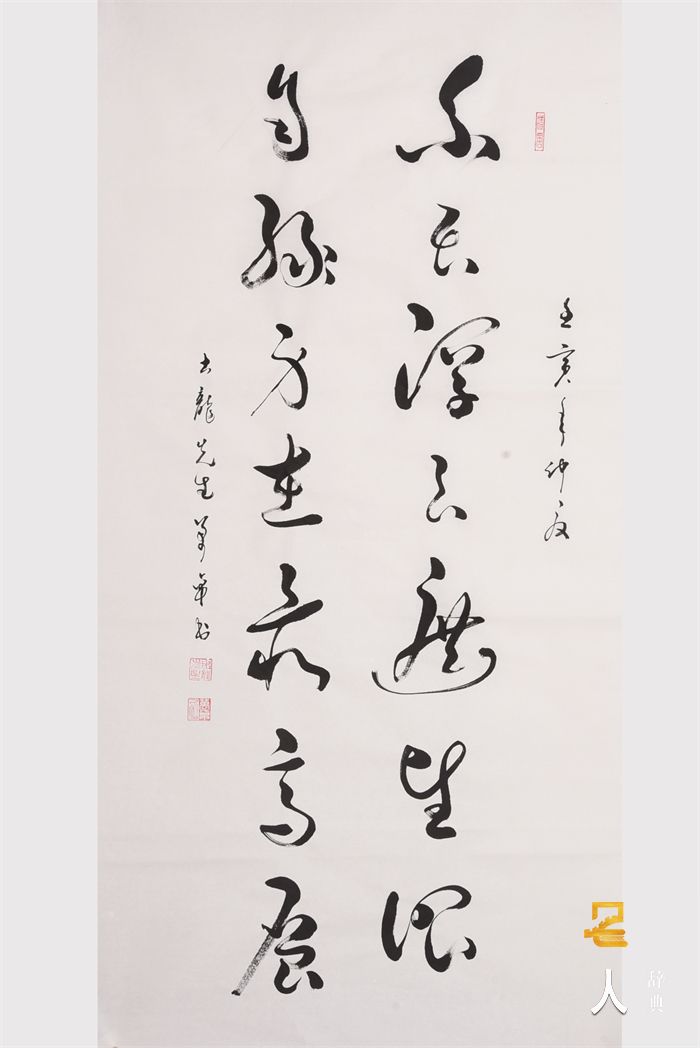 壬寅年仲夏
不畏浮云遮望眼
自缘身在最高层
龍先生
名人
辞典